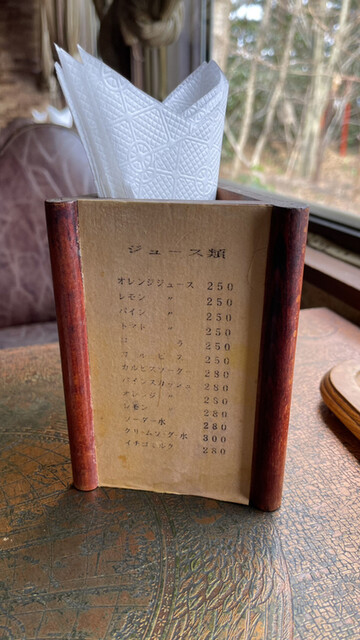 ジュース類
オレンジジュース 250
レモン 〃 250
パイン 〃 250
トマト 〃 250
コーラ 250
カルピス 250
カルピスソーダ 280
パインスカッシュ 280
オレンジ 〃 250
レモン 〃 280
ソーダー水 280
クリームソーダ水 300
イチゴミルク 280